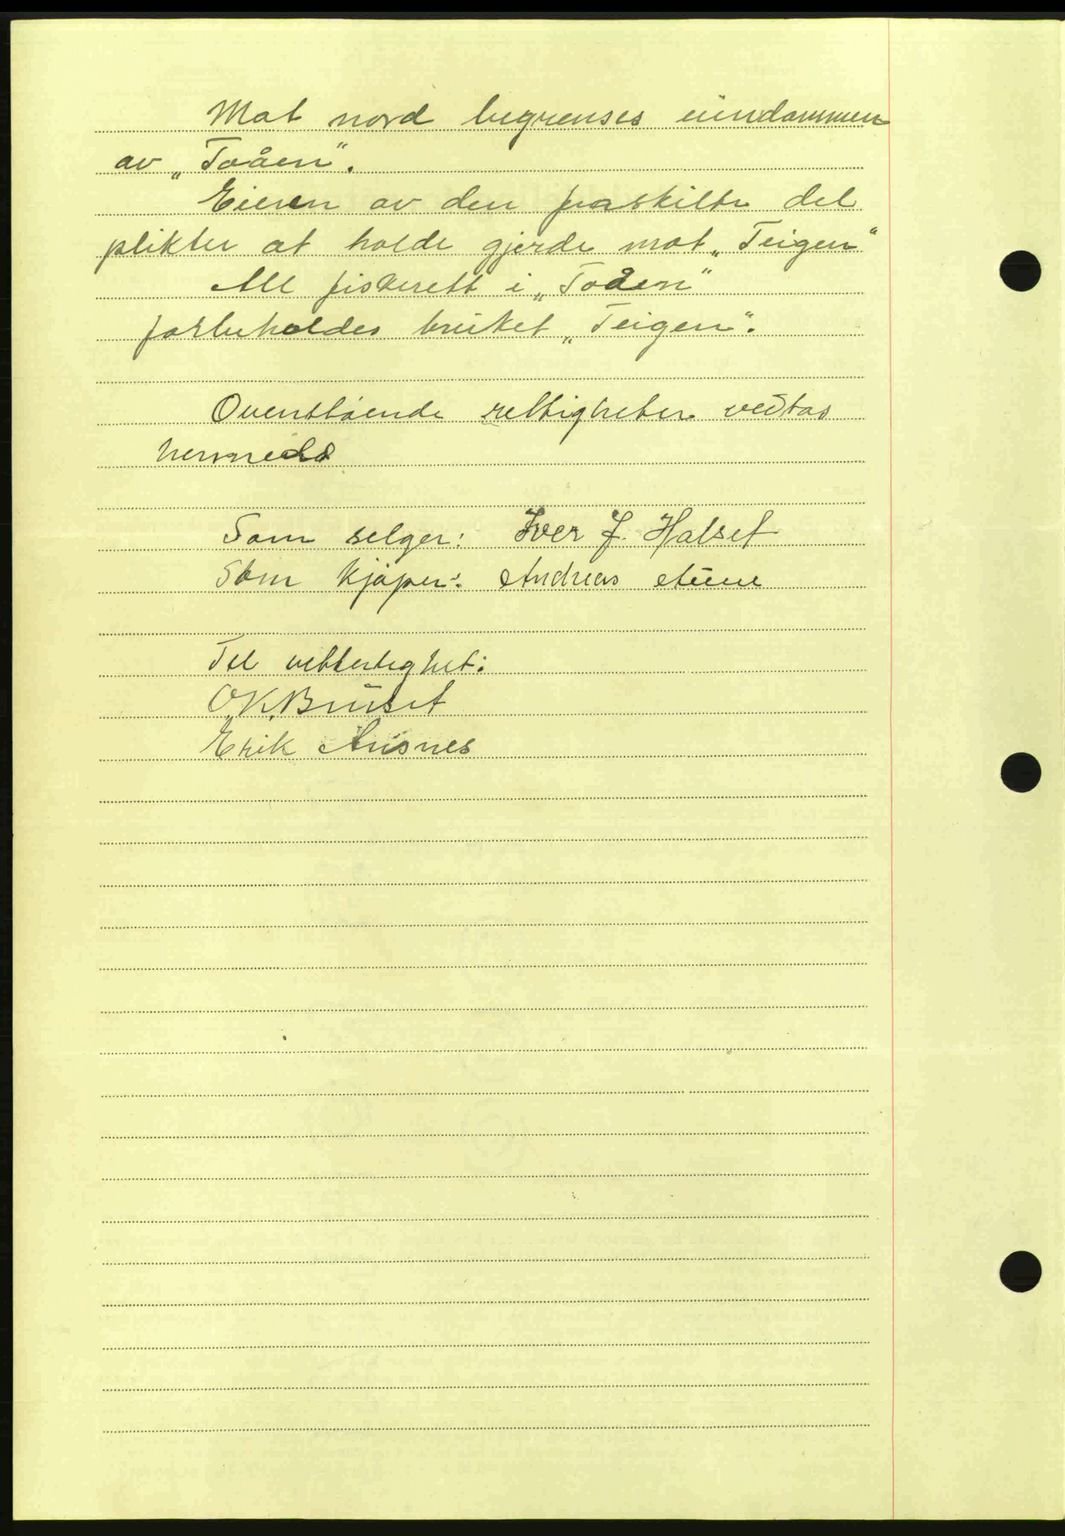 Mot nord begrenses eiendommen
av „Toåen“.
Eieren av den fraskilte del
plikter at holde gjerde mot „Teigen“
All fiskerett i „Toåen“
forbeholdes bruket „Teigen“.
Ovenstående rettigheter vedtas
hermeds
Som selger: Iver J. Halset
Som kjøper: Andreas Aune
Til vitterlighet:
O.K. Bruset
Erik Ansnes